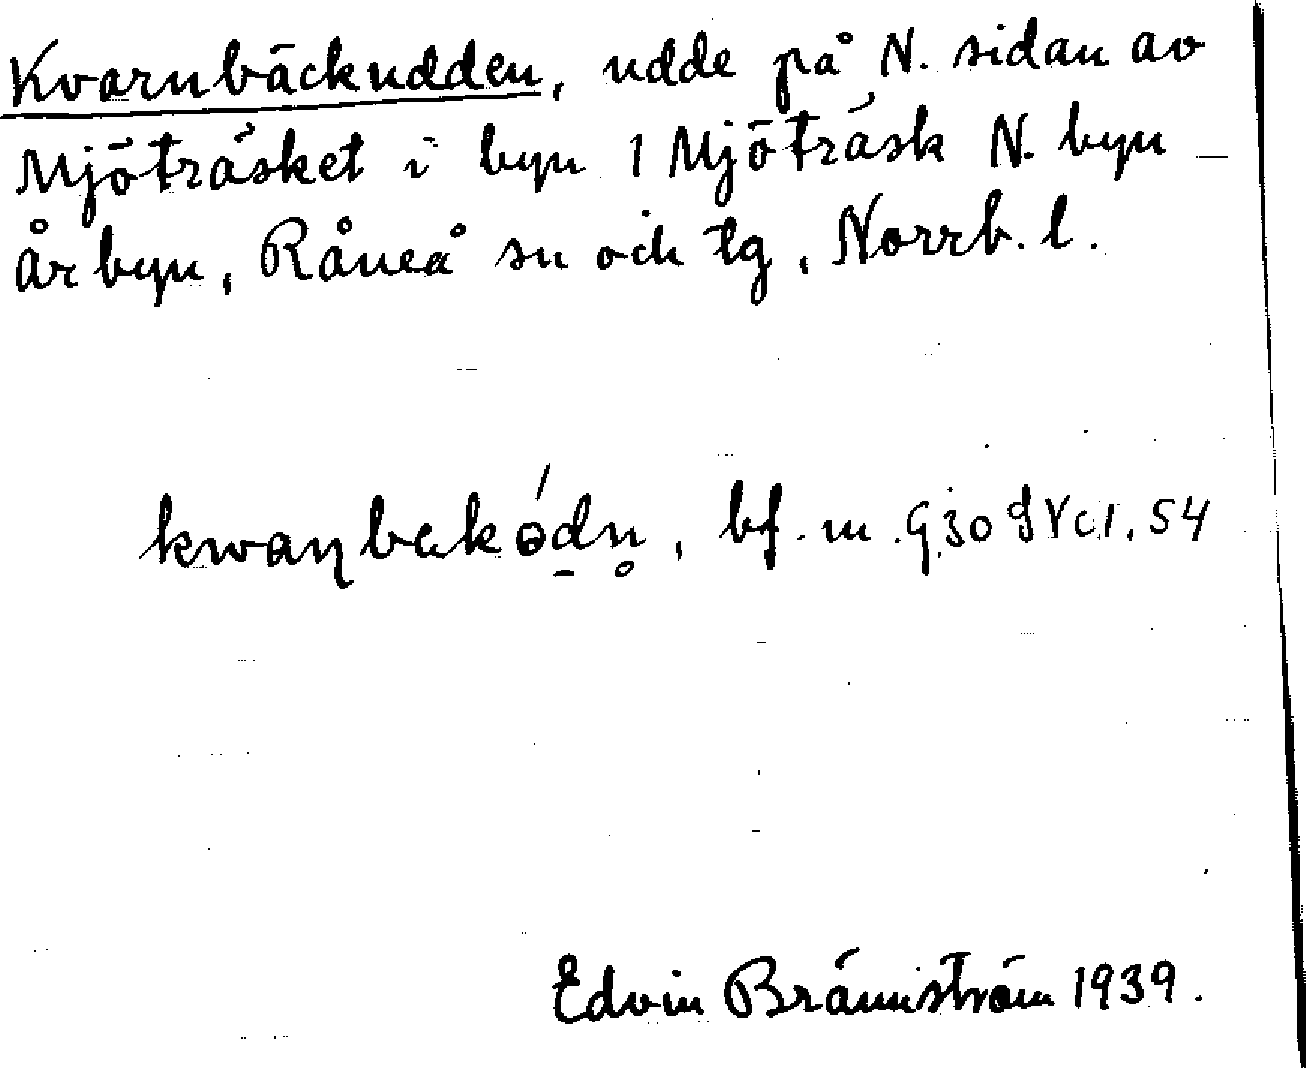 Kvarnbäckudden, udde på N. sidan av
Mjöträsket i byn 1 Mjöträsk N. byn –
Årbyn, Råneå sn och tg, Norrb. l.
kwaɳbekódn̥, bf. m.
Edvin Brännström 1939.